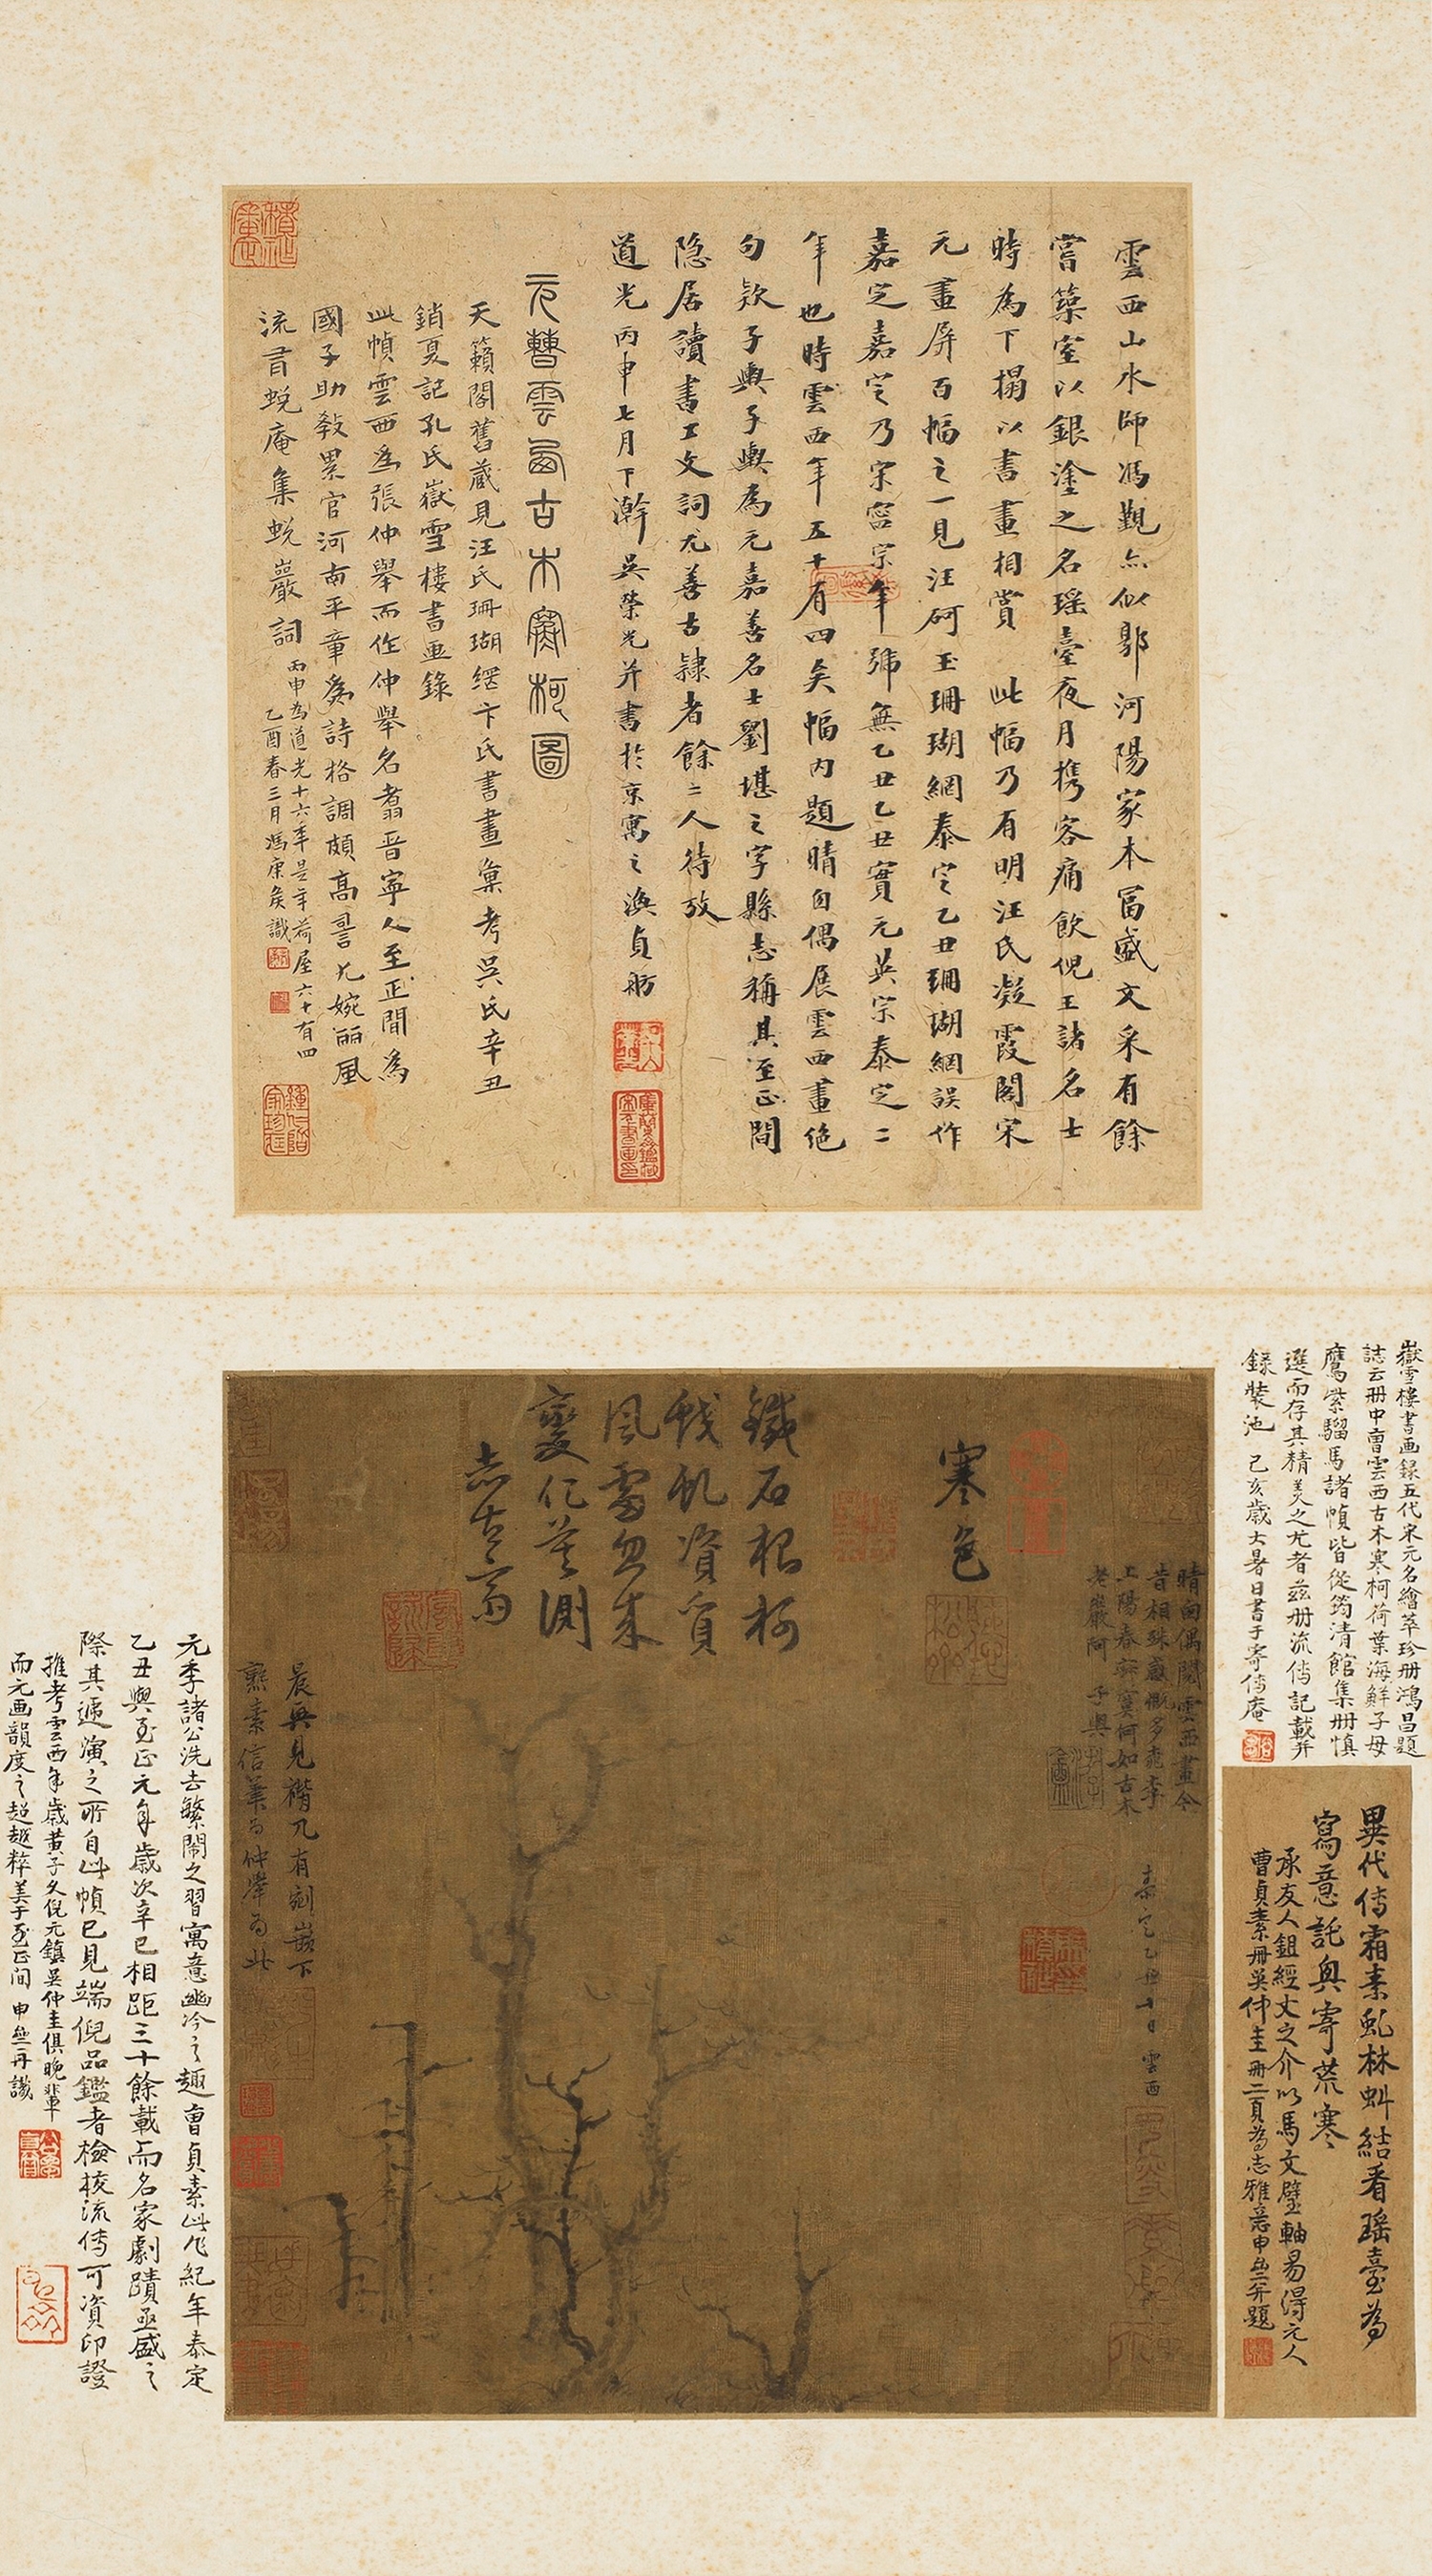 雲西山水師馮覲亦似郭河陽家本富盛文采有餘
嘗築室以銀塗之名瑶臺夜月携客痛飲倪王諸名士
時為下榻以書畫相賞 此幅乃有明汪氏凝霞閣宋
元畫屏百幅之一見汪砢玉珊瑚網泰定乙丑珊瑚網誤作
嘉定嘉定乃宋寧宗年號無乙丑乙丑實元英宗泰定二
年也時雲西年五十有四矣幅内題晴囪偶展雲西畫絶
句欵子輿子輿為元嘉善名士劉堪之字縣志稱其至正間
隐居讀書工文詞尤善古隷者餘二人待攷
道光丙申七月下澣吳榮光并書於京寓之渙貞舫
元曹雲西古木寒柯圖
天籟閣舊藏見汪氏珊瑚網卞氏書畫彙考吳氏辛丑
銷夏記孔氏嶽雪樓書画錄
此幀雲西為張仲舉而作仲舉名翥晋寧人至正間為
國子助教累官河南平章為詩格調頗高詞尤婉麗風
流有蛻庵集蛻巖詞
丙申為道光十六年是年荷屋六十有四
乙酉春三月馮康矦識
嶽雪樓書画録五代宋元名繪萃珍册鴻昌題
誌云册中曹雲西古木寒柯荷葉海鮮子母
鷹紫騮馬諸幀皆從筠清館集册慎
選而存其精美之尤者兹册流傳記載并
録裝池 己亥歲大暑日書于寄傳庵
異代傳霜素虬林蚪結看瑶臺為
寫意託興寄荒寒
承友人鉏經丈之介以馬文璧軸易得元人
曹貞素册吳仲圭册二頁為志雅意申無并題
寒色
晴囪偶閲雲西畫今
昔相殊感慨多飛李
上陽春寂寞何如古木
老巖阿 子輿
泰定乙丑十日 雲西
鐵石根柯
戟虬資質
風雷忽來
變化莫測
志古齋
晨興見楮几有剡
熟素信筆為仲舉為此
元季諸公洗去繁閙之習寓意幽冷之趣曹貞素此作紀年泰定
乙丑與至正元年歲次辛巳相距三十餘載而名家劇蹟亟盛之
際其遞演之所自此幀已見端倪品鑑者檢校流傳可資印證
推考雲西年歲黄子久倪元鎮吳仲圭俱晚輩
而元画韻度之超越粹美于至正间 申無再識